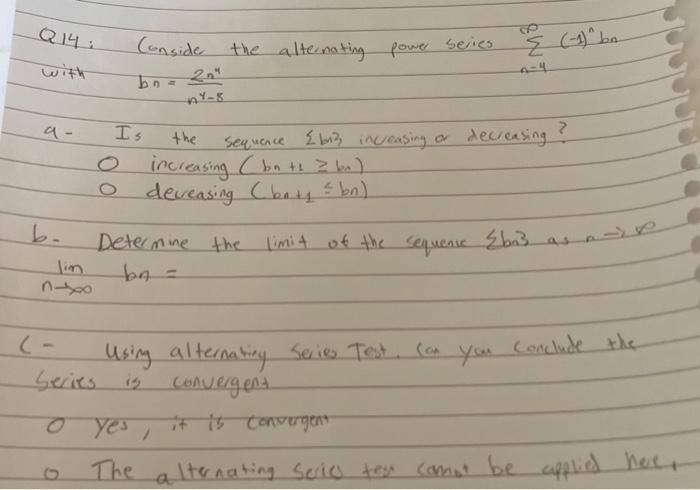 Q14: Conside the alternating power series ∞ Σ n=4 (-1)^n bn
with bn = 2n^4 / n^4-8
a- Is the sequence {bn} increasing or decreasing?
O increasing (bn+1 ≥ bn)
O decreasing (bn+1 ≤ bn)
b- Determine the limit of the sequence {bn} as n→∞
lim n→∞ bn =
C- Using alternating Series Test. Can you conclude the
Series is convergent
O yes, it is convergent
O The alternating series test cannot be applied here.